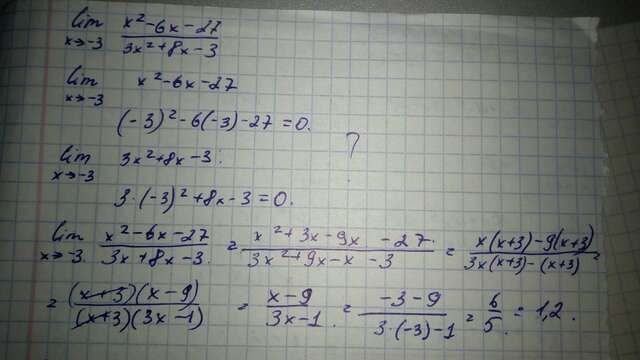 lim x→-3 (x²-6x-27)/(3x²+8x-3)
lim x→-3 x²-6x-27
(-3)²-6(-3)-27=0.
lim x→-3 3x²+8x-3; ?
3·(-3)²+8x-3=0.
lim x→-3 (x²-6x-27)/(3x+8x-3) = (x²+3x-9x-27)/(3x²+9x-x-3) = (x(x+3)-9(x+3))/(3x(x+3)-(x+3)) =
= ((x+3)(x-9))/((x+3)(3x-1)) = (x-9)/(3x-1) = (-3-9)/(3·(-3)-1) = 6/5 = 1,2.